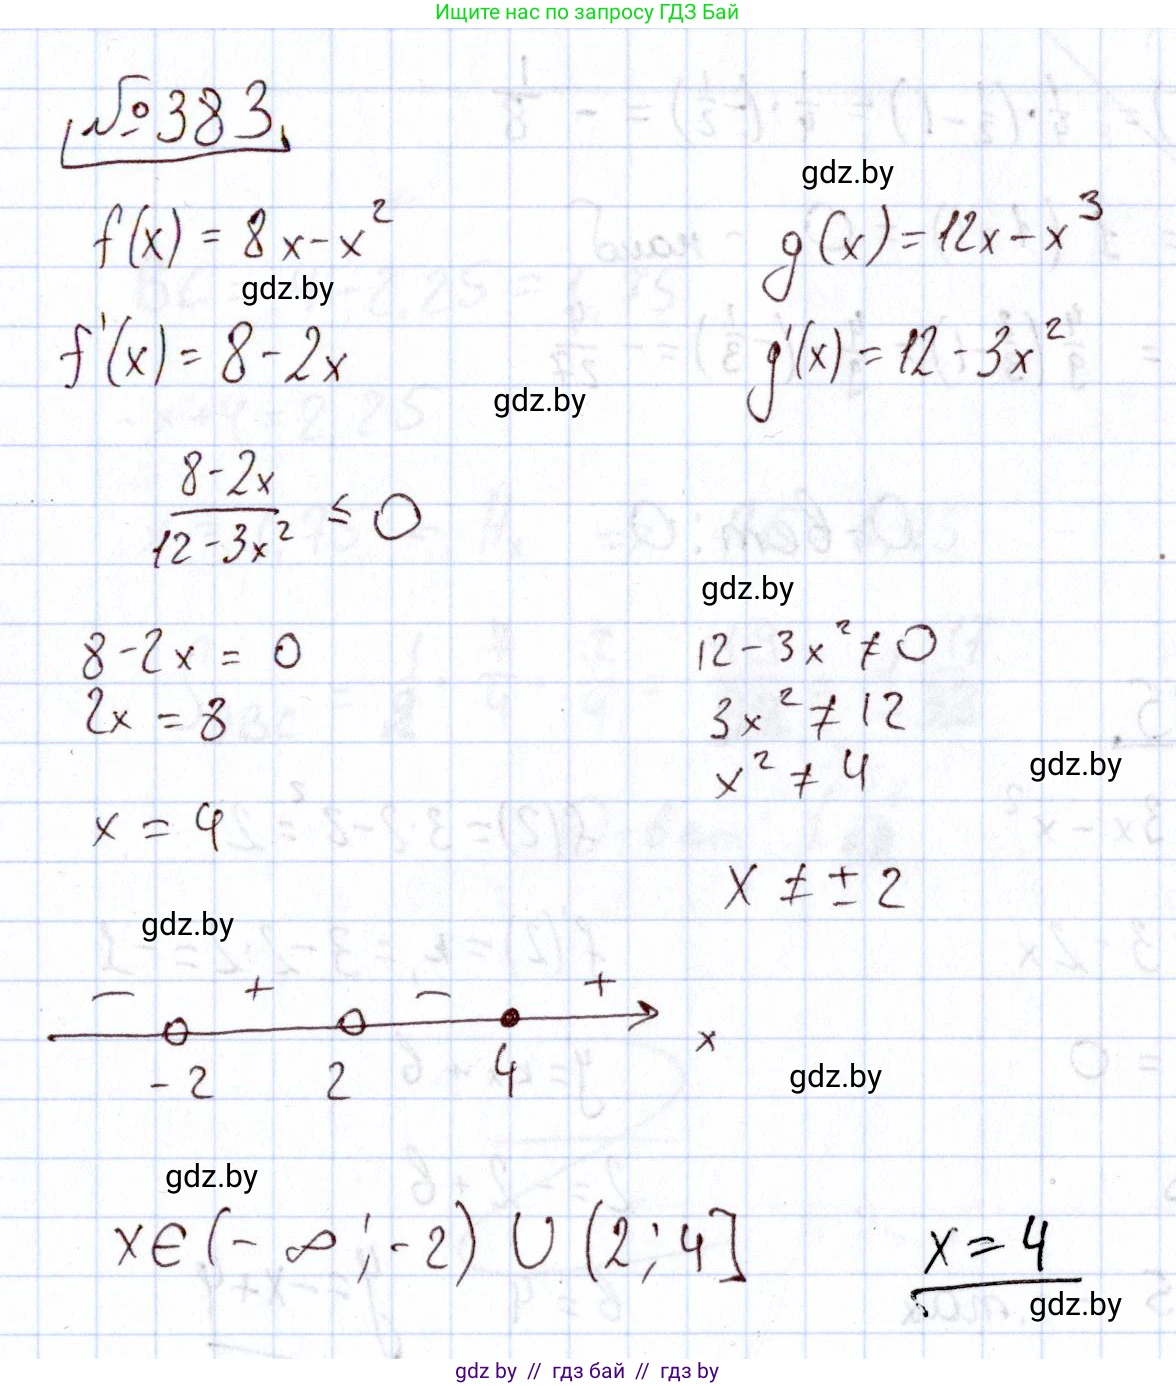 Ищите нас по запросу ГДЗ Бай
№383
gdz.by
f(x) = 8x - x² g(x) = 12x - x³
gdz.by
f'(x) = 8 - 2x g'(x) = 12 - 3x²
gdz.by
8 - 2x
12 - 3x² ≤ 0
gdz.by
8 - 2x = 0 12 - 3x² ≠ 0
2x = 8 3x² ≠ 12
x² ≠ 4 gdz.by
x = 4
x ≠ ± 2
gdz.by
− + − +
x
-2 2 4
gdz.by
gdz.by
x ∈ (-∞; -2) ∪ (2; 4] x = 4
gdz.by
gdz by // гдз бай // гдз by